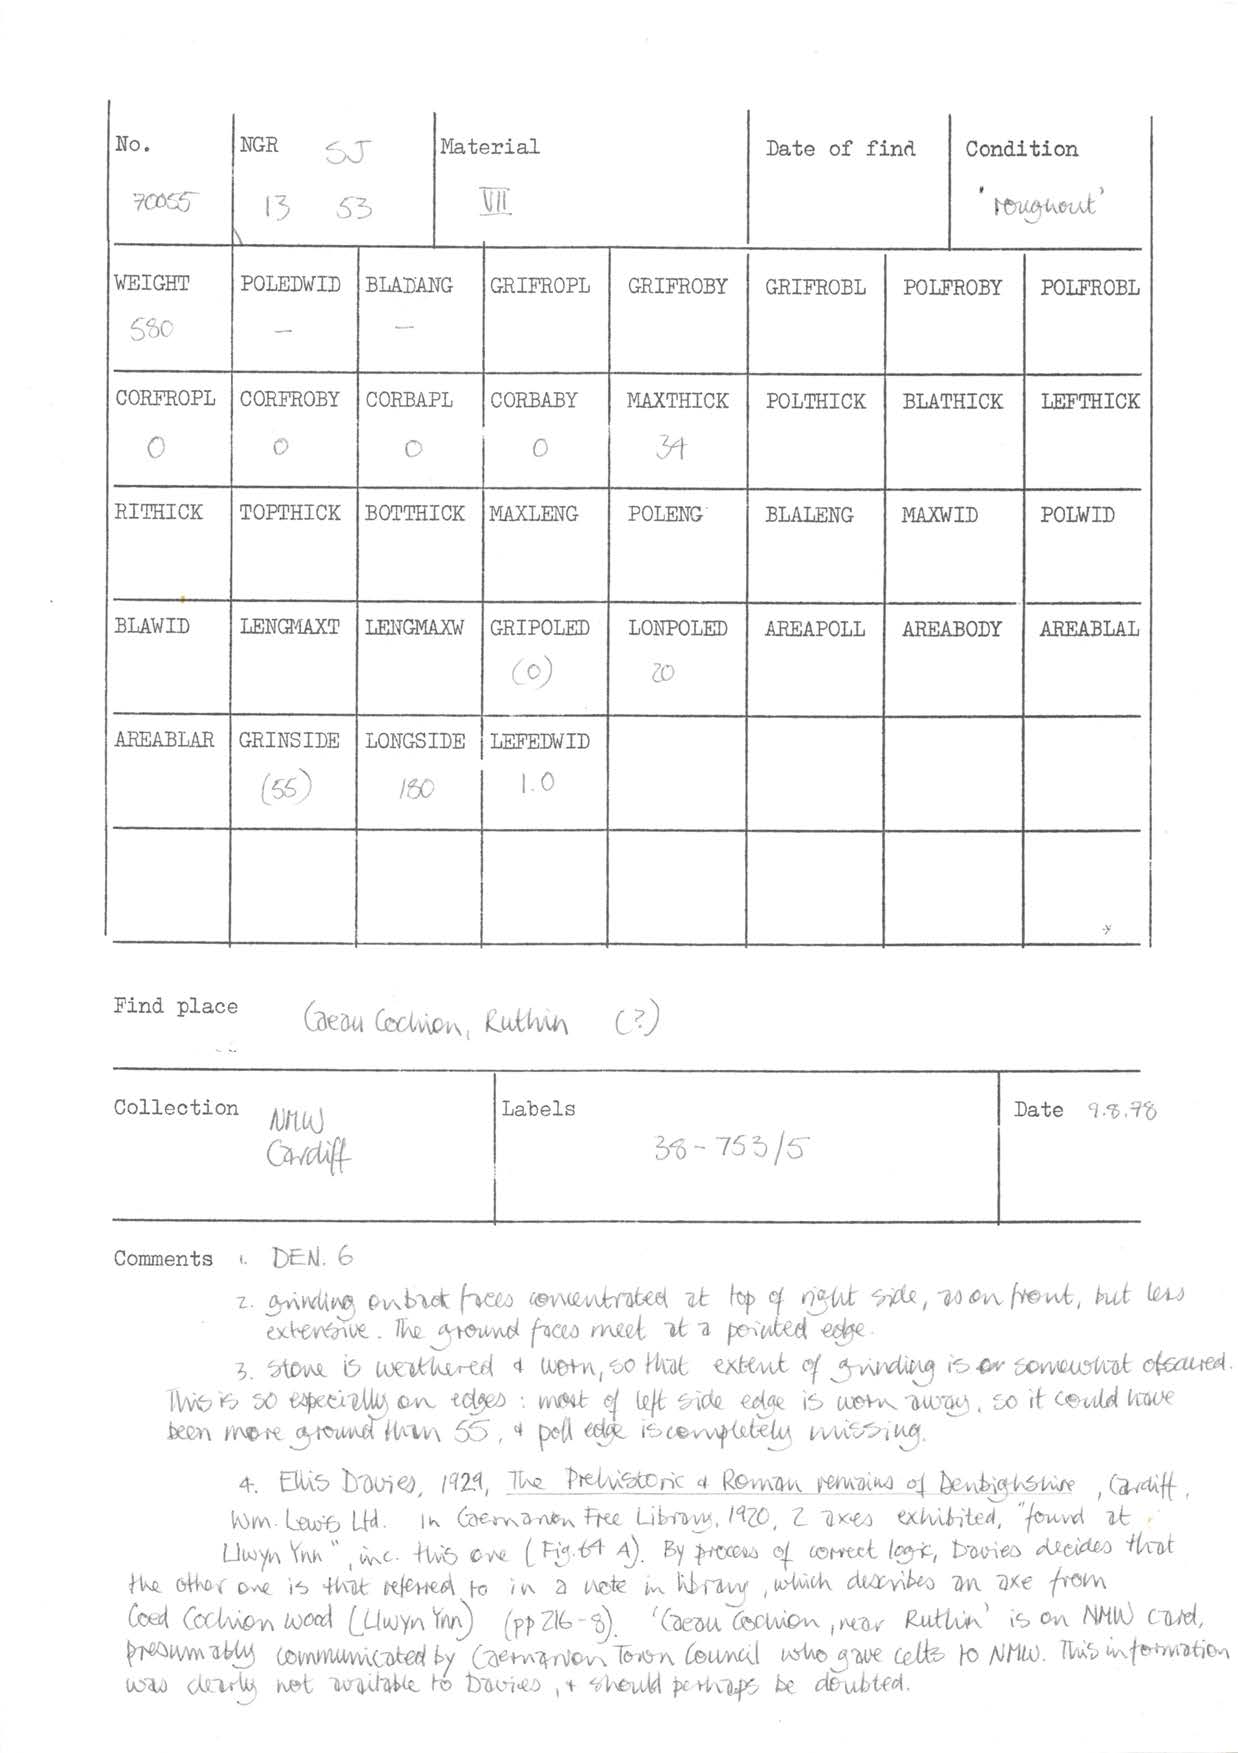 No. NGR SJ Material Date of find Condition
70055 13 53 VII 'roughout'
WEIGHT POLEDWID BLADANG GRIFROPL GRIFROBY GRIFROBL POLFROBY POLFROBL
580 — —
CORFROPL CORFROBY CORBAPL CORBABY MAXTHICK POLTHICK BLATHICK LEFTHICK
0 0 0 0 34
RITHICK TOPTHICK BOTTHICK MAXLENG POLENG BLALENG MAXWID POLWID
BLAWID LENGMAXT LENGMAXW GRIPOLED LONPOLED AREAPOLL AREABODY AREABLAL
(0) 20
AREABLAR GRINSIDE LONGSIDE LEFEDWID
(55) 180 1.0
Find place Caeau Cochion, Ruthin (?)
Collection NMW Labels Date 9.8.78
Cardiff 38-753/5
Comments 1. DEN. 6
2. grinding on back faces concentrated at top of right side, as on front, but less
extensive. The ground faces meet at a pointed edge.
3. Stone is weathered & worn, so that extent of grinding is somewhat obscured.
This is so especially on edges: most of left side edge is worn away, so it could have
been more ground than 55, & poll edge is completely missing.
4. Ellis Davies, 1929, The Prehistoric & Roman remains of Denbighshire, Cardiff,
Wm. Lewis Ltd. In Caernarvon Free Library, 1920, 2 axes exhibited, "found at
Llwyn Ynn", inc. this one (Fig. 64 A). By process of correct logic, Davies decides that
the other one is that referred to in a note in library, which describes an axe from
Coed Cochion wood (Llwyn Ynn) (pp 216-8). 'Caeau Cochion, near Ruthin' is on NMW card,
presumably communicated by Caernarvon Town Council who gave celts to NMW. This information
was clearly not available to Davies, & should perhaps be doubted.